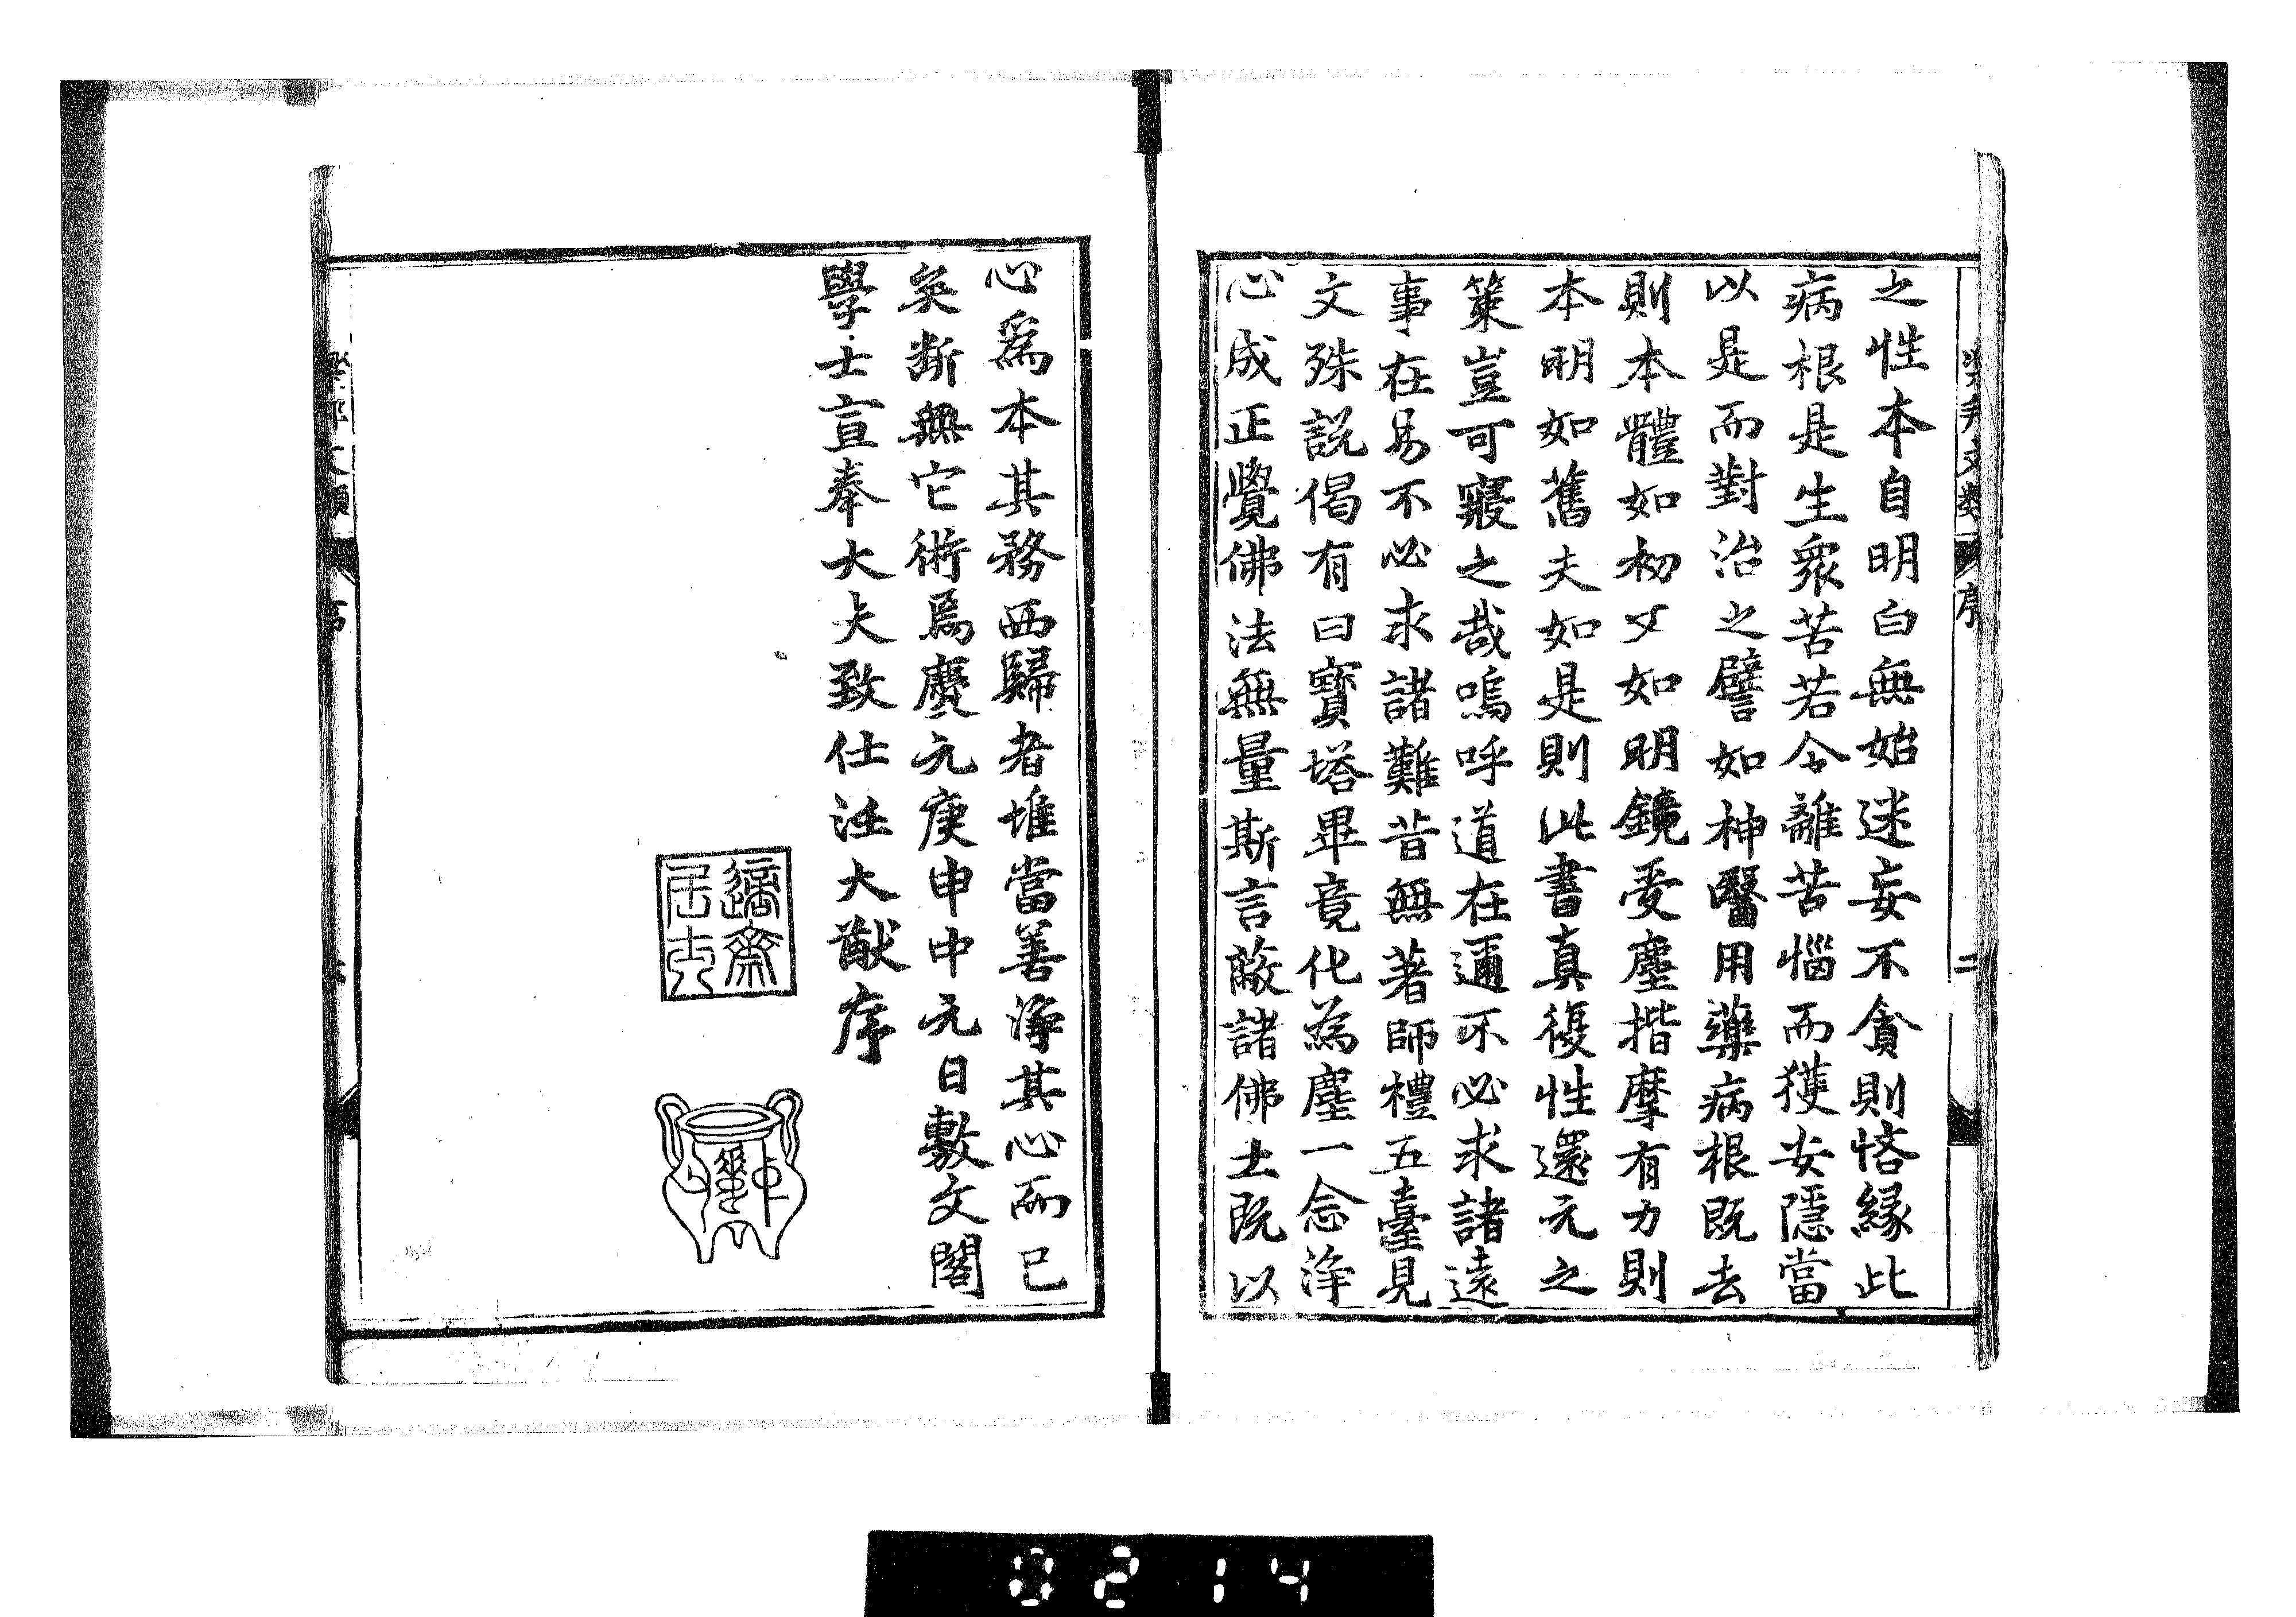 之性本自明白無始迷妄不貪則悋緣此
病根是生衆苦若令離苦惱而獲安隱當
以是而對治之譬如神醫用藥病根既去
則本體如初又如明鏡受塵揩摩有力則
本明如舊夫如是則此書真復性還元之
策豈可寢之哉嗚呼道在邇不必求諸遠
事在易不必求諸難昔無著師禮五臺見
文殊説偈有曰寶塔畢竟化為塵一念淨
心成正覺佛法無量斯言蔽諸佛土既以
心爲本其務西歸者堆當善淨其心而已
矣断無它術焉慶元庚申中元日敷文閣
學士宣奉大夫致仕汪大猷序
適齋居士
序
二
0214